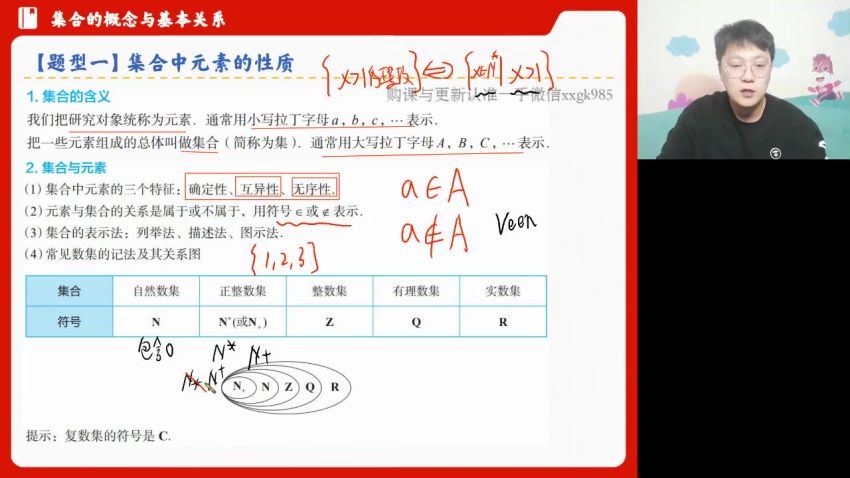 集合的概念与基本关系
【题型一】集合中元素的性质
{x>1的整数} ⇔ {x∈N*| x>1}
购课与更新认准一手微信xxgk985
1. 集合的含义
我们把研究对象统称为元素. 通常用小写拉丁字母 a, b, c, … 表示.
把一些元素组成的总体叫做集合（简称为集）. 通常用大写拉丁字母 A, B, C, … 表示.
2. 集合与元素
(1) 集合中元素的三个特征：确定性、互异性、无序性.
a∈A
(2) 元素与集合的关系是属于或不属于，用符号∈或∉表示.
(3) 集合的表示法：列举法、描述法、图示法.
a∉A
Veen
(4) 常见数集的记法及其关系图
{1,2,3}
集合 自然数集 正整数集 整数集 有理数集 实数集
符号 N N*(或N+) Z Q R
包含0 N* N+
N* N+
N+ N Z Q R
提示：复数集的符号是 C.